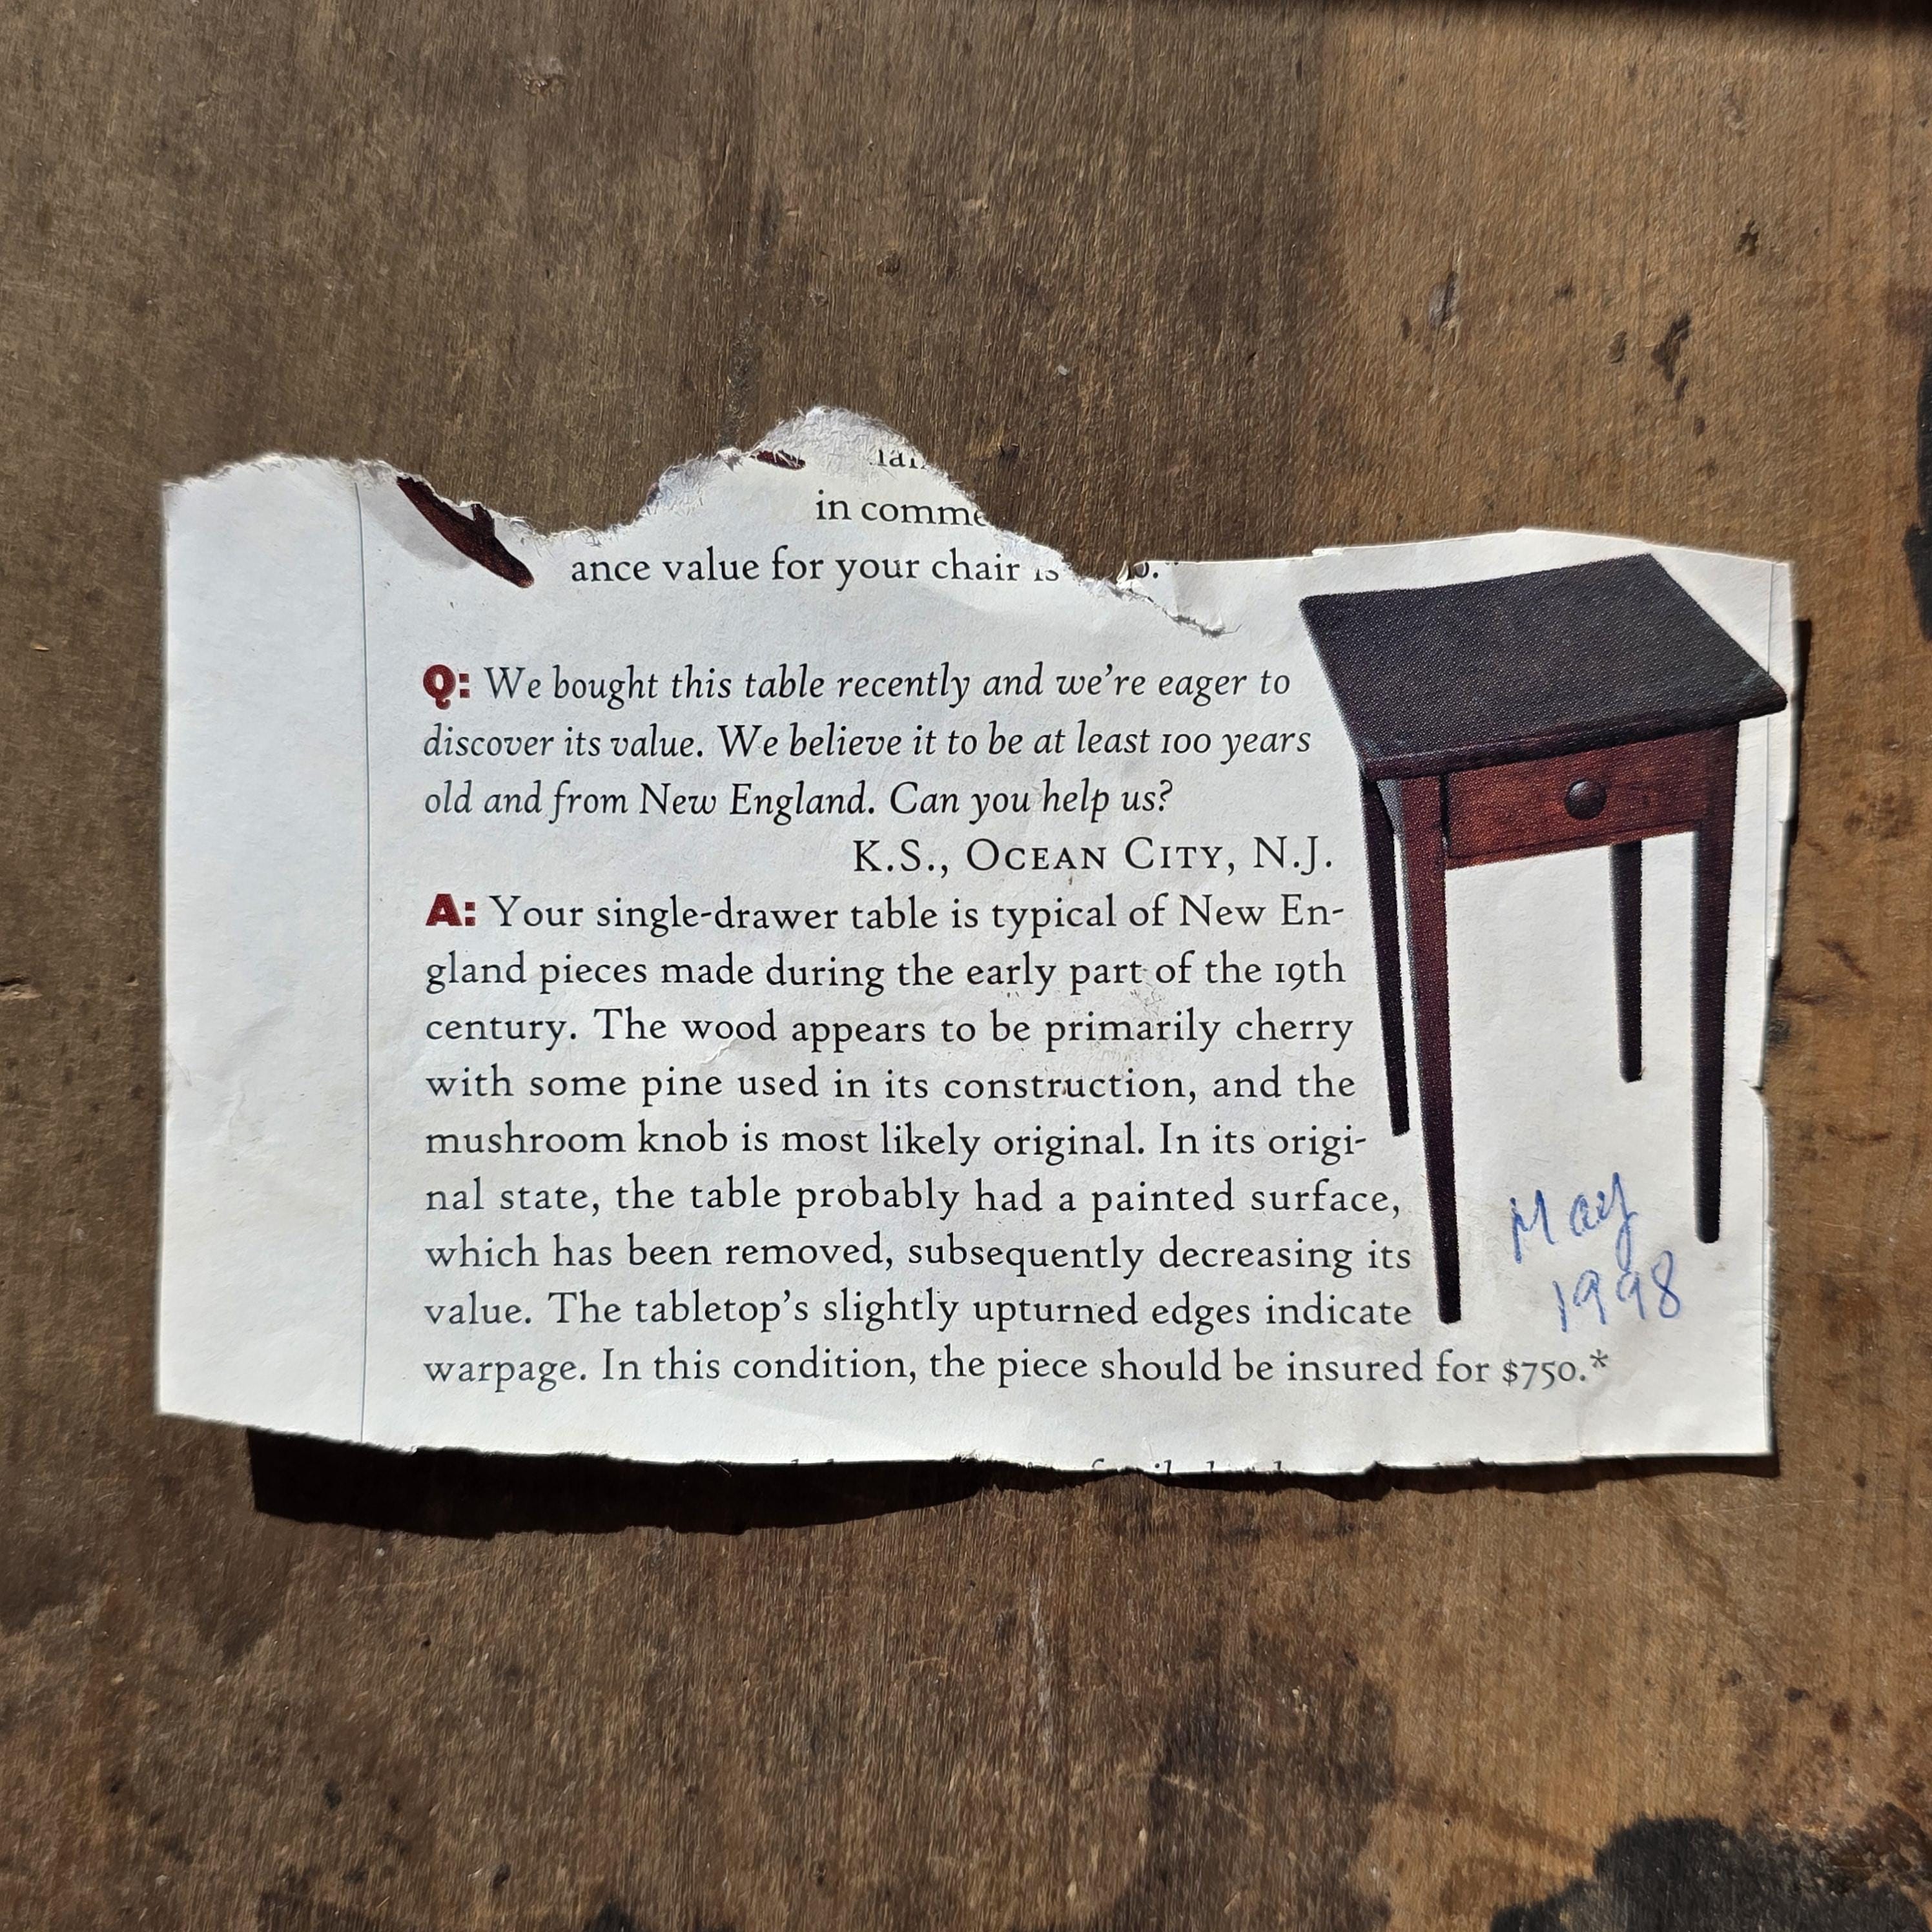 in comme
ance value for your chair is
Q: We bought this table recently and we're eager to
discover its value. We believe it to be at least 100 years
old and from New England. Can you help us?
K.S., OCEAN CITY, N.J.
A: Your single-drawer table is typical of New En-
gland pieces made during the early part of the 19th
century. The wood appears to be primarily cherry
with some pine used in its construction, and the
mushroom knob is most likely original. In its origi-
nal state, the table probably had a painted surface,
which has been removed, subsequently decreasing its
value. The tabletop's slightly upturned edges indicate
warpage. In this condition, the piece should be insured for $750.*
May
1998